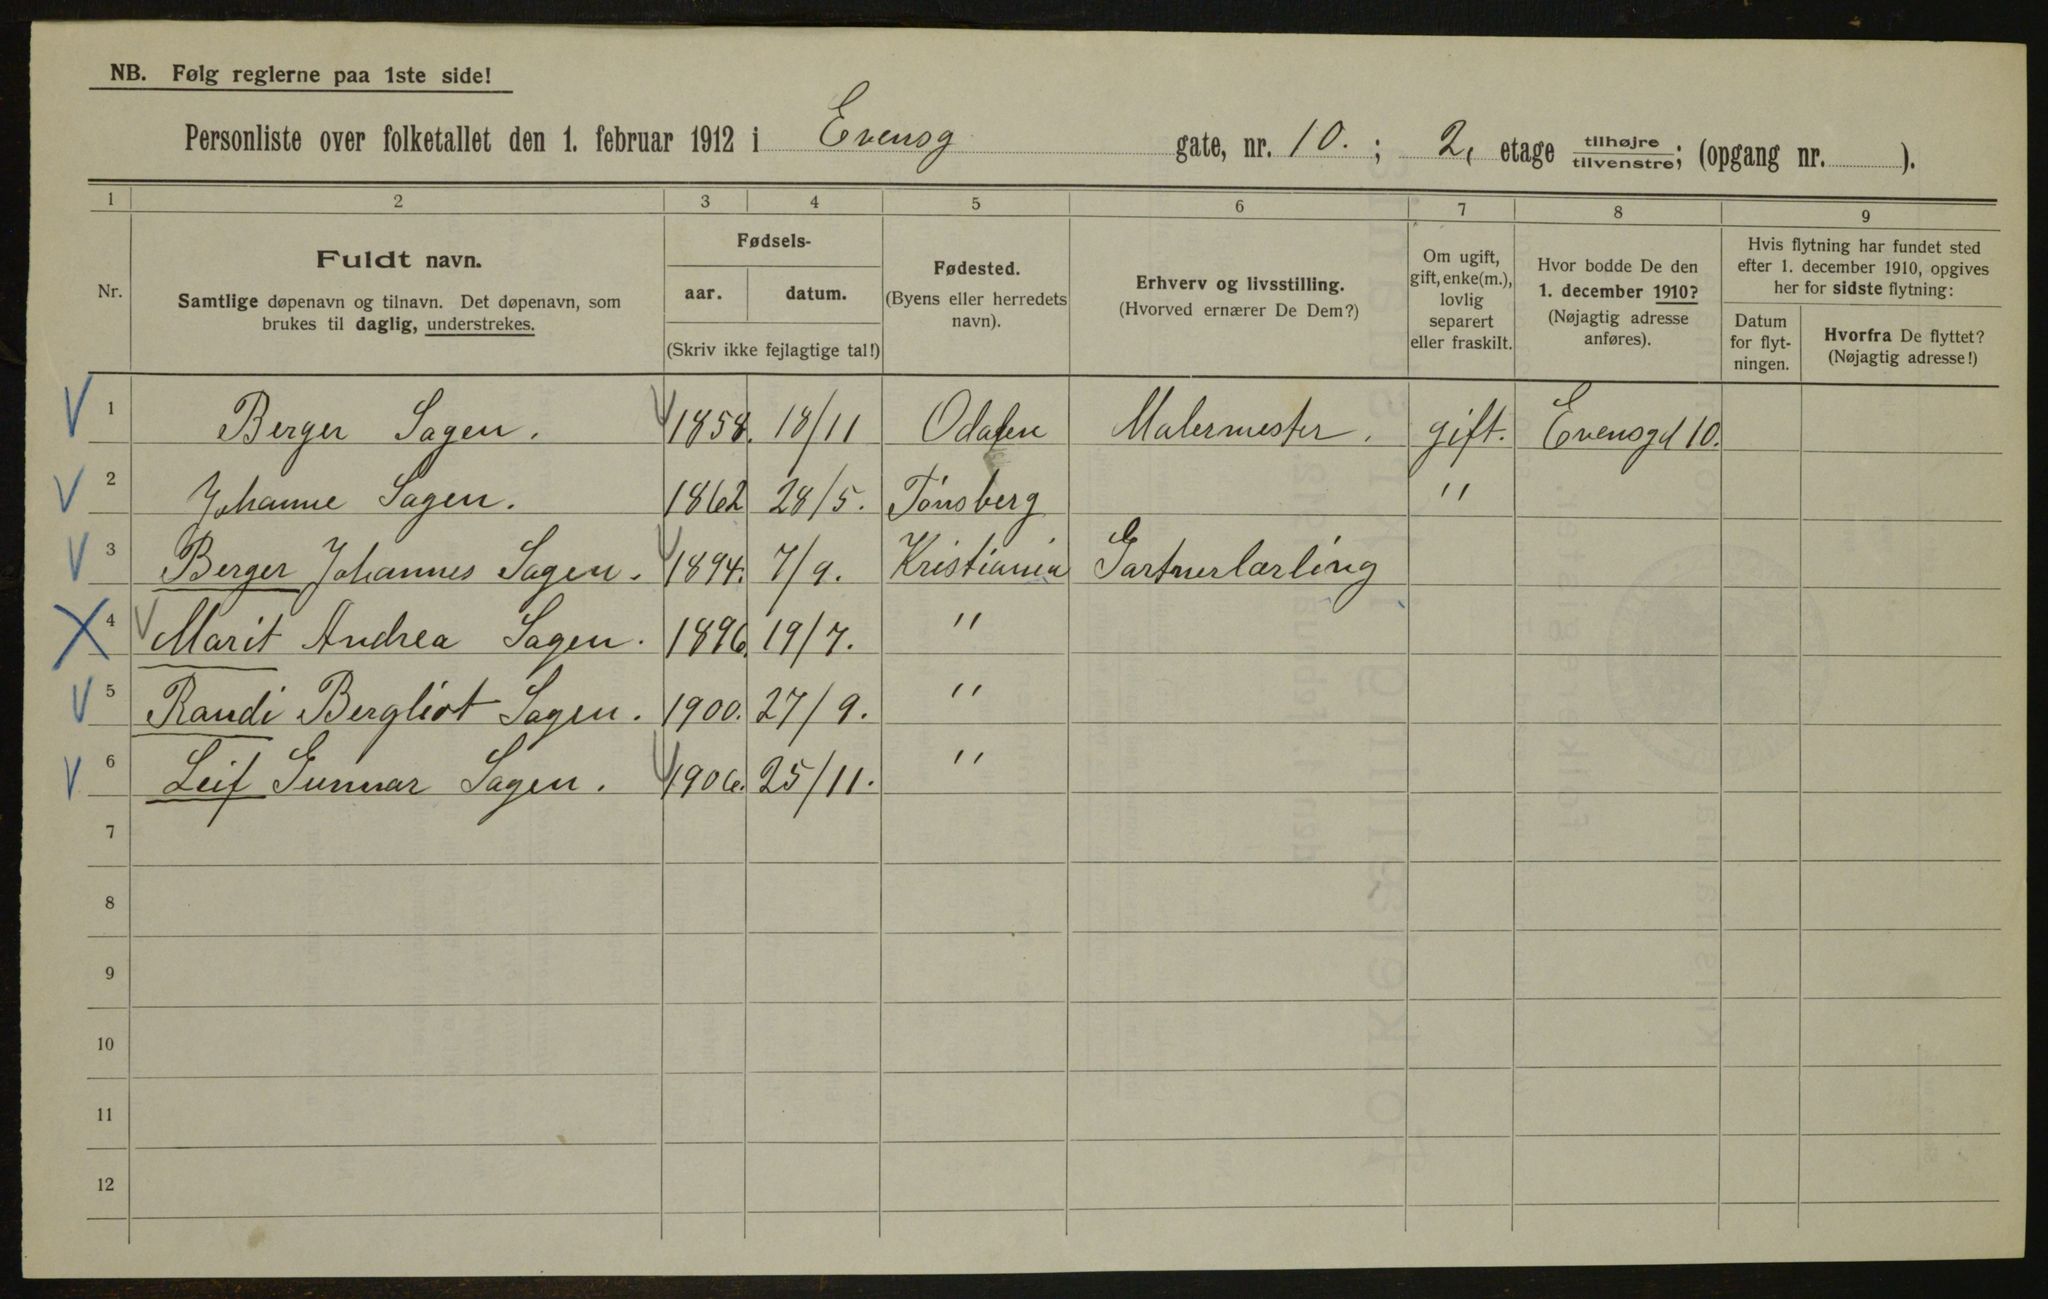 NB. Følg reglerne paa 1ste side!
Personliste over folketallet den 1. februar 1912 i Evensg gate, nr. 10. ; 2, etage tilhøjre/tilvenstre; (opgang nr. ).
1 2 3 4 5 6 7 8 9
Nr.
Fuldt navn.
Samtlige døpenavn og tilnavn. Det døpenavn, som
brukes til daglig, understrekes.
Fødsels-
aar. datum.
(Skriv ikke fejlagtige tal!)
Fødested.
(Byens eller herredets
navn).
Erhverv og livsstilling.
(Hvorved ernærer De Dem?)
Om ugift,
gift, enke(m.),
lovlig
separert
eller fraskilt.
Hvor bodde De den
1. december 1910?
(Nøjagtig adresse
anføres).
Hvis flytning har fundet sted
efter 1. december 1910, opgives
her for sidste flytning:
Datum
for flyt-
ningen.
Hvorfra De flyttet?
(Nøjagtig adresse!)
1 Berger Sagen. 1858. 18/11 Odalen Malermester. gift. Evensgd 10.
2 Johanne Sagen. 1862 28/5. Tønsberg "
3 Berger Johannes Sagen. 1894. 7/9. Kristiania Gartnerlærling
4 Marit Andrea Sagen. 1896. 19/7. "
5 Randi Bergliot Sagen. 1900. 27/9. "
6 Leif Gunnar Sagen. 1906. 25/11. "
7
8
9
10
11
12